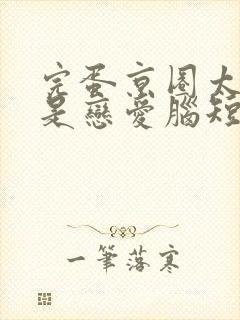 完蛋京圈大
是戀愛腦短
一筆落寒